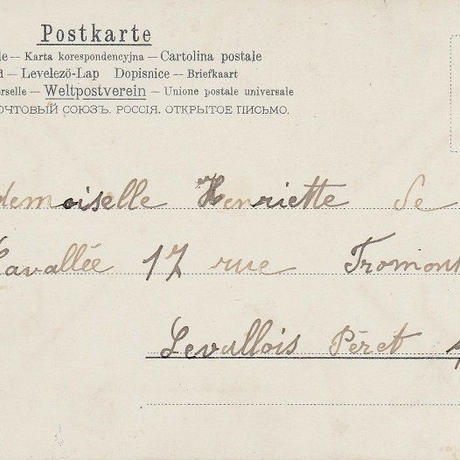 Postkarte
le — Karta korespondencyjna — Cartolina postale
d — Levelező-Lap Dopisnice — Briefkaart
erselle — Weltpostverein — Unione postale universale
ПОЧТОВЫЙ СОЮЗЪ. РОССІЯ. ОТКРЫТОЕ ПИСЬМО.
demoiselle Henriette de
Lavallée 17 rue Fromont
Levallois Péret